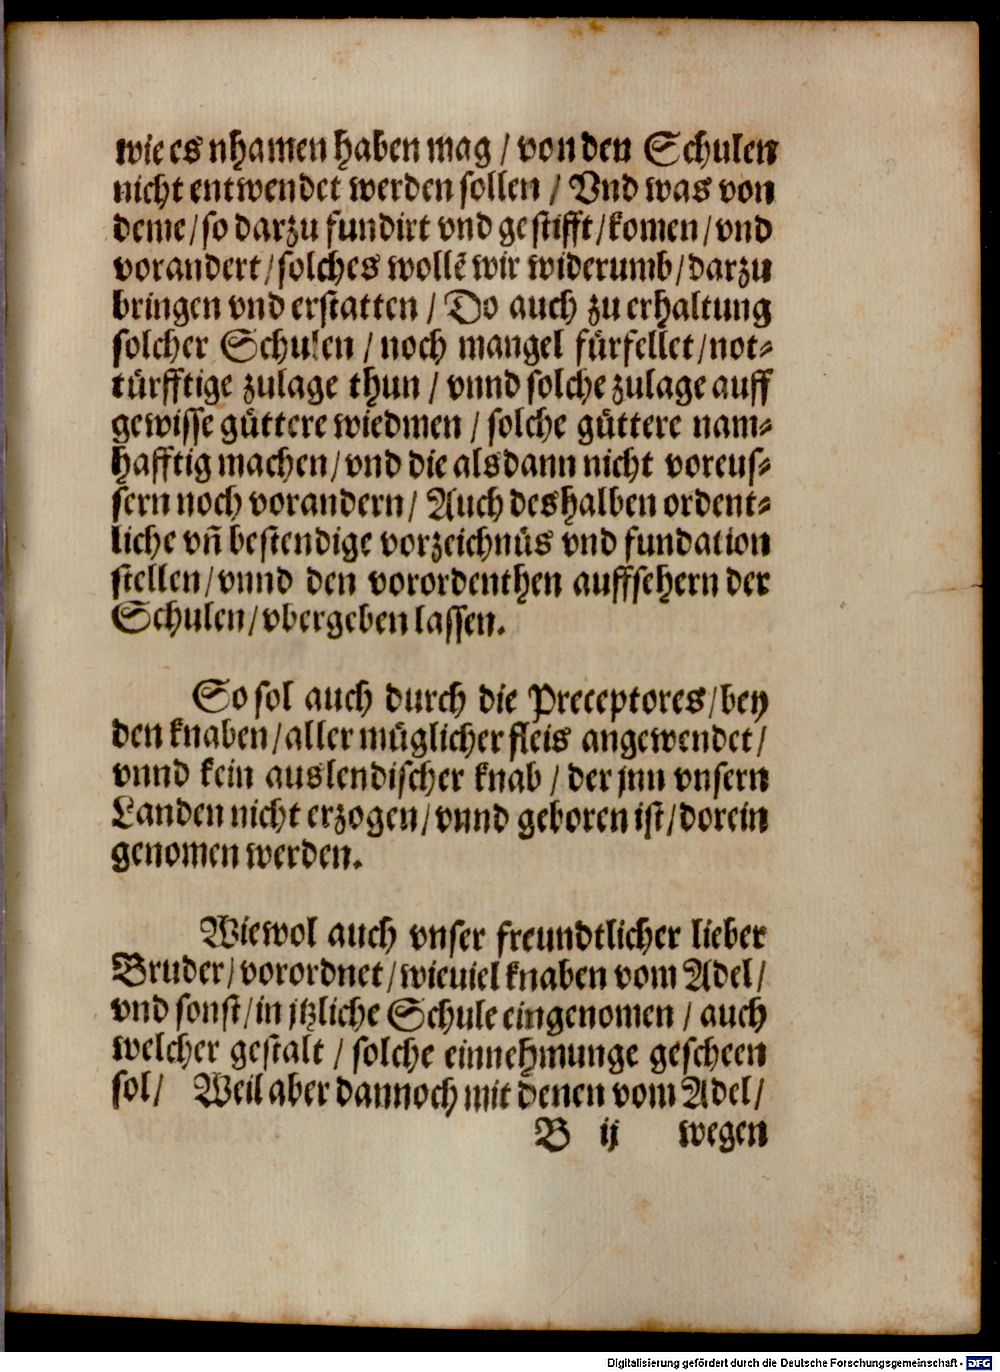 wie es nhamen haben mag / von den Schulen
nicht entwendet werden sollen / Vnd was von
deme / so darzu fundirt vnd gestifft / komen / vnd
vorandert / solches wollē wir widerumb / darzu
bringen vnd erstatten / Do auch zu erhaltung
solcher Schulen / noch mangel fürfellet / not⸗
türfftige zulage thun / vnnd solche zulage auff
gewisse güttere wiedmen / solche güttere nam⸗
hafftig machen / vnd die alsdann nicht voreus⸗
sern noch vorandern / Auch deshalben ordent⸗
liche vñ bestendige vorzeichnüs vnd fundation
stellen / vnnd den vorordenthen auffsehern der
Schulen / vbergeben lassen.
So sol auch durch die Preceptores / bey
den knaben / aller müglicher fleis angewendet /
vnnd kein auslendischer knab / der jnn vnsern
Landen nicht erzogen / vnnd geboren ist / dorein
genomen werden.
Wiewol auch vnser freundtlicher lieber
Bruder / vorordnet / wieuiel knaben vom Adel /
vnd sonst / in jtzliche Schule eingenomen / auch
welcher gestalt / solche einnehmunge gescheen
sol / Weil aber dannoch mit denen vom Adel /
B ij wegen
Digitalisierung gefördert durch die Deutsche Forschungsgemeinschaft - DFG